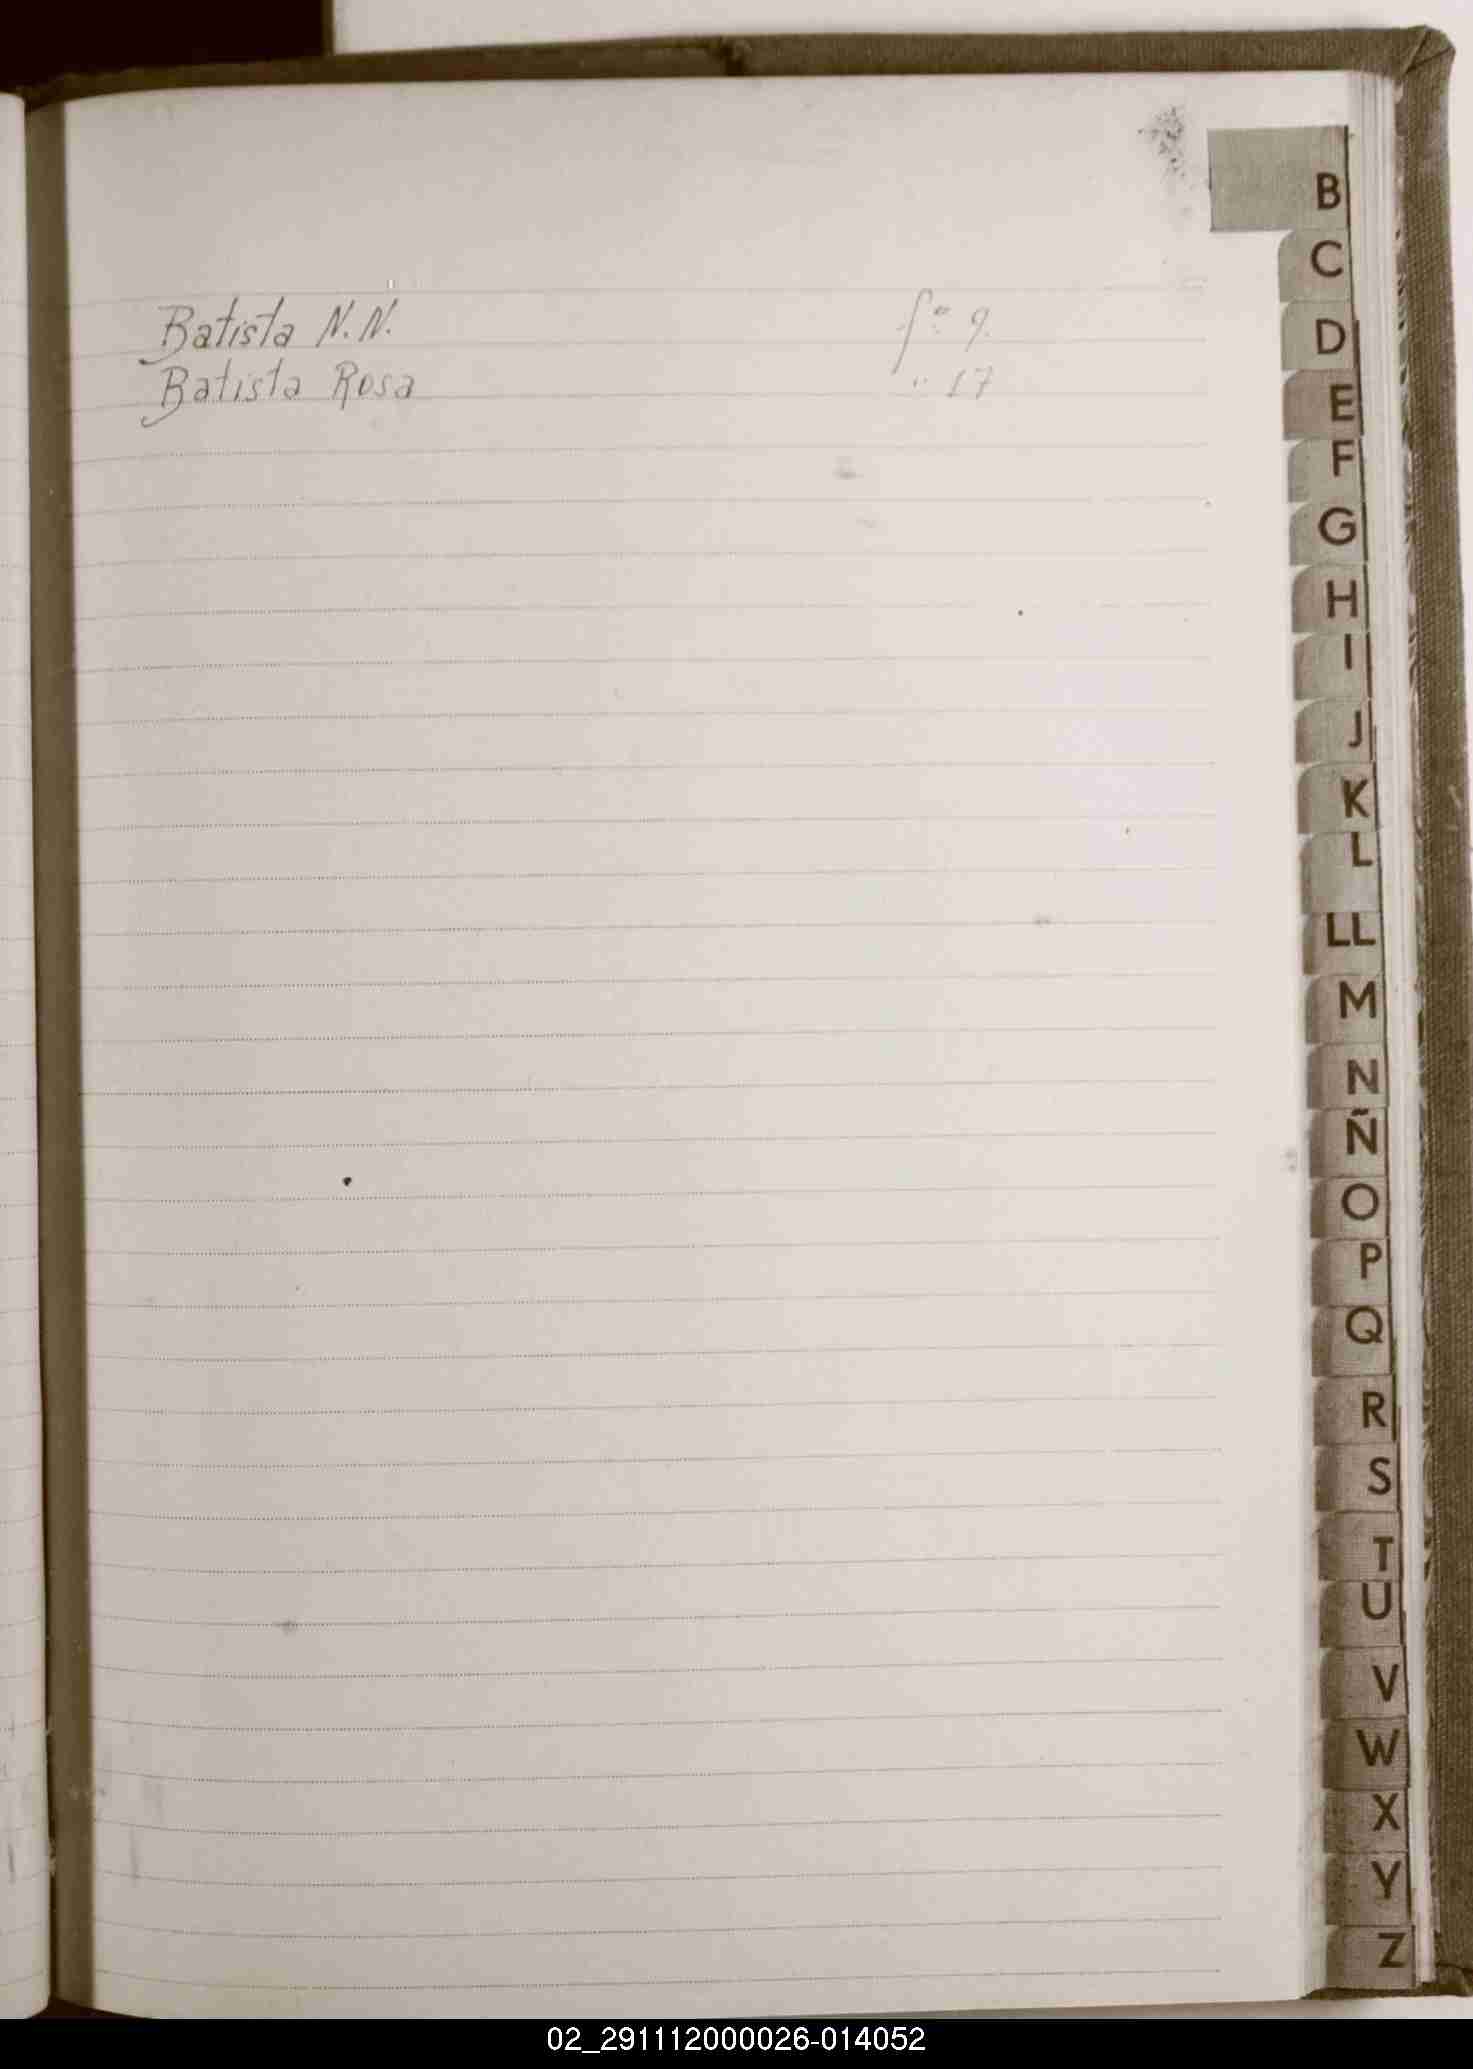 Batista N.N. fº 9.
Batista Rosa " 17
B
C
D
E
F
G
H
I
J
K
L
LL
M
N
Ñ
O
P
Q
R
S
T
U
V
W
X
Y
Z
02_291112000026-014052